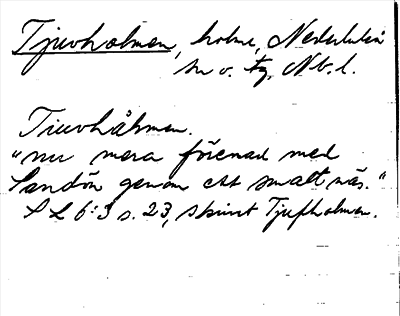 Tjuvholmen, holme, Nederluleå
sn o. tg, Nb. l.
Tiuvhålmen.
"nu mera förenad med
Sandön genom ett smalt näs."
SL 6:3 s. 23, skrivt Tjufholmen.